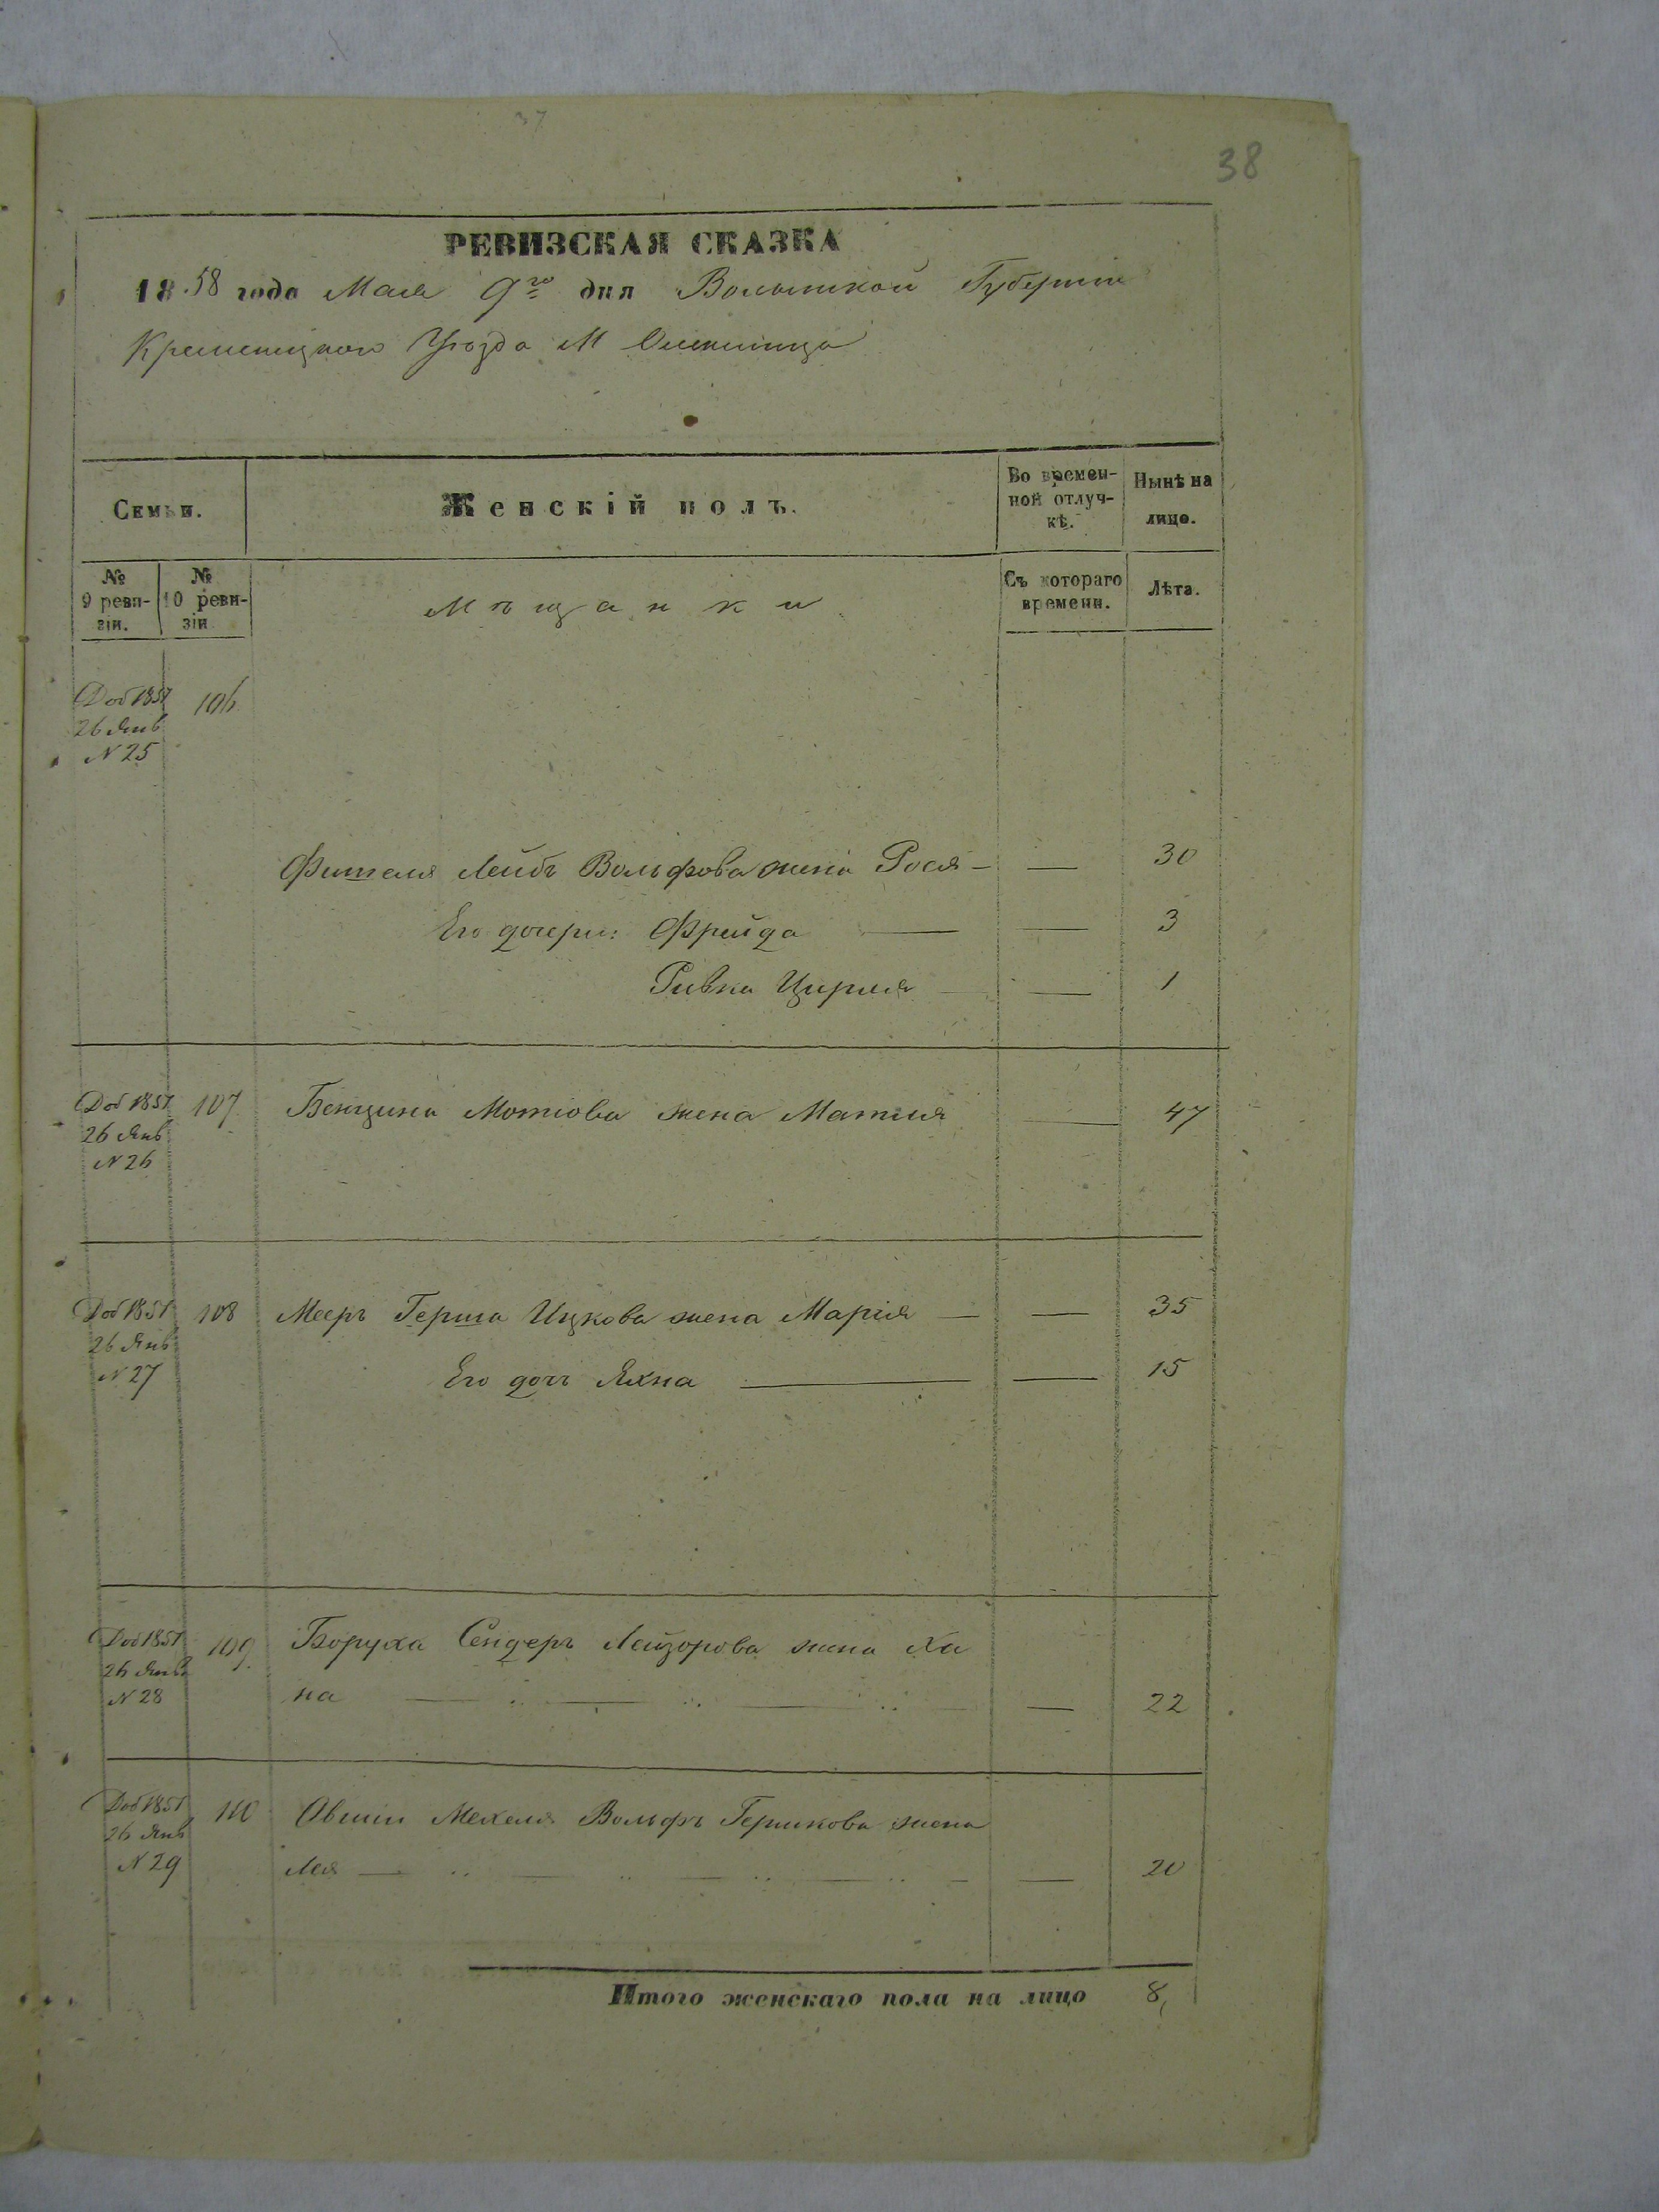 37
38
РЕВИЗСКАЯ СКАЗКА
1858 года Мая 9го дня Волынской Губерніи
Кременецкого Уѣзда М
Семьи.
Женскій полъ.
Во времен-
ной отлуч-
кѣ.
Нынѣ на
лицо.
№
9 реви-
зіи.
№
10 реви-
зіи
Мѣщанки
Съ котораго
времени.
Лѣта.
Доб 1851 106
26 Янв
N 25
Фишеля Лейбъ Вольфова жена Рося — — 30
Его дочери: Фрейда — — 3
Ривка Цирля — — 1
Доб 1851 107 Бенциона Мотіова жена Матля — 47
26 Янв
N 26
Доб 1851 108 Мееръ Герша Ицкова жена Марія — — 35
26 Янв
N 27
Его дочь Яхна — — 15
Доб 1851 109 Боруха Сендеръ Лейзорова жена Ха
26 Янв
N 28
на — — 22
Доб 1851 110 Овшіи Мехеля Вольфъ Гершкова жена
26 Янв
N 29
Лея — — 20
Итого женскаго пола на лицо 8,